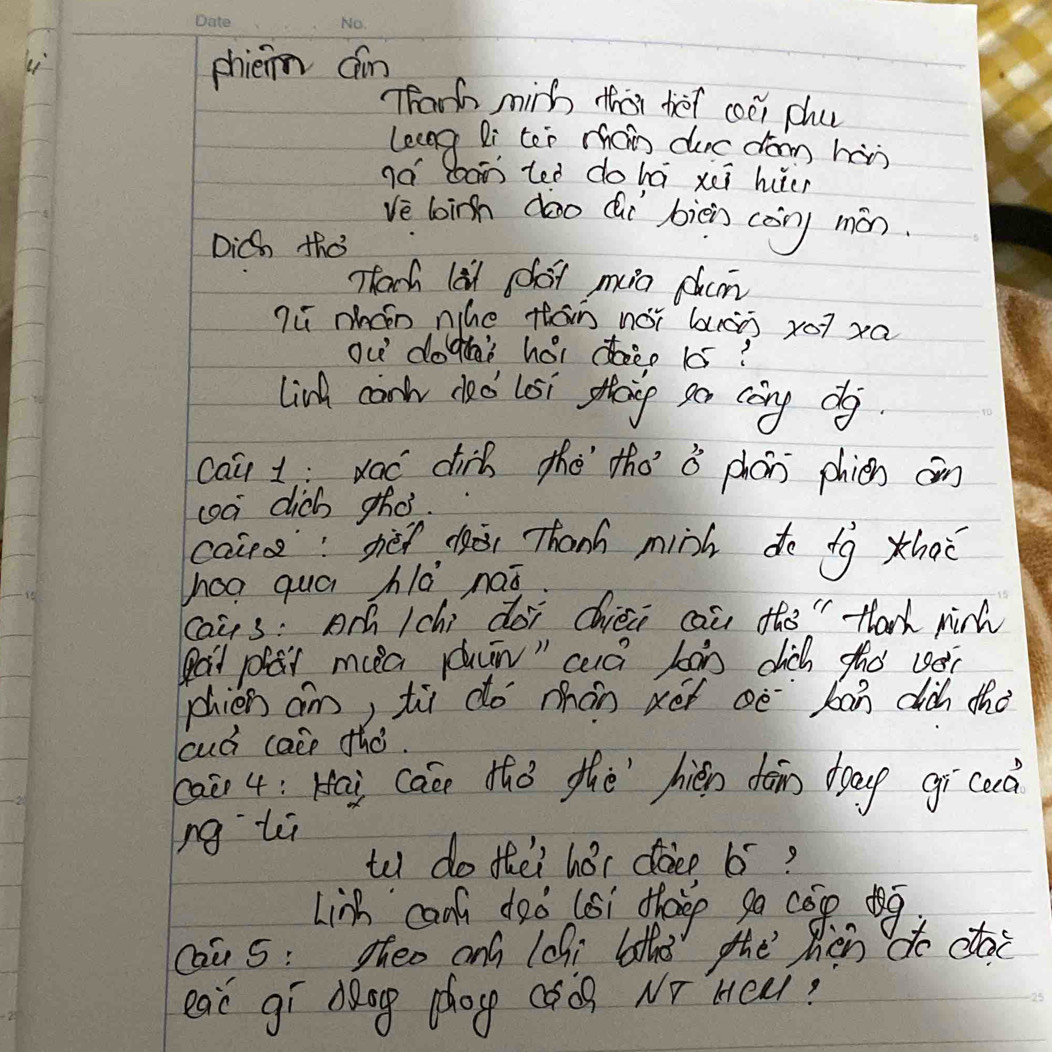 Date No.
phiên âm
Thanh minh thời tiết vũ phu
Lung lí tù nhân dục đoạn hồn
Tá vấn tự do hà xứ hữu
Vệ binh dao chỉ biện công môn.
Dịch thơ
Thanh minh lất phất mưa phùn
Tù nhân nghe thấm nỗi buồn xót xa
Tự do thử hỏi đâu là?
Lính canh trỏ lối thẳng ra công đg.
Câu 1: xác định thể thơ ở phần phiên âm
và dịch thơ.
Câu 2: tiết trời Thanh minh đc tg khắc
hoạ qua h/ả nào.
Câu 3: Anh/chị đối chiếu câu thơ "thanh minh
lất phất mưa phùn" của bản dịch thơ với
phiên âm, từ đó nhận xét về bản dịch thơ
của câu thơ.
Câu 4: Hai câu thơ thể hiện tâm trạng gì của
ng tù
tự do thử hỏi đâu là?
Lính canh trỏ lối thẳng ra công đg.
Câu 5: Theo anh/chị bthơ thể hiện đc đặc
sắc gì trong phong cách NT HCM?